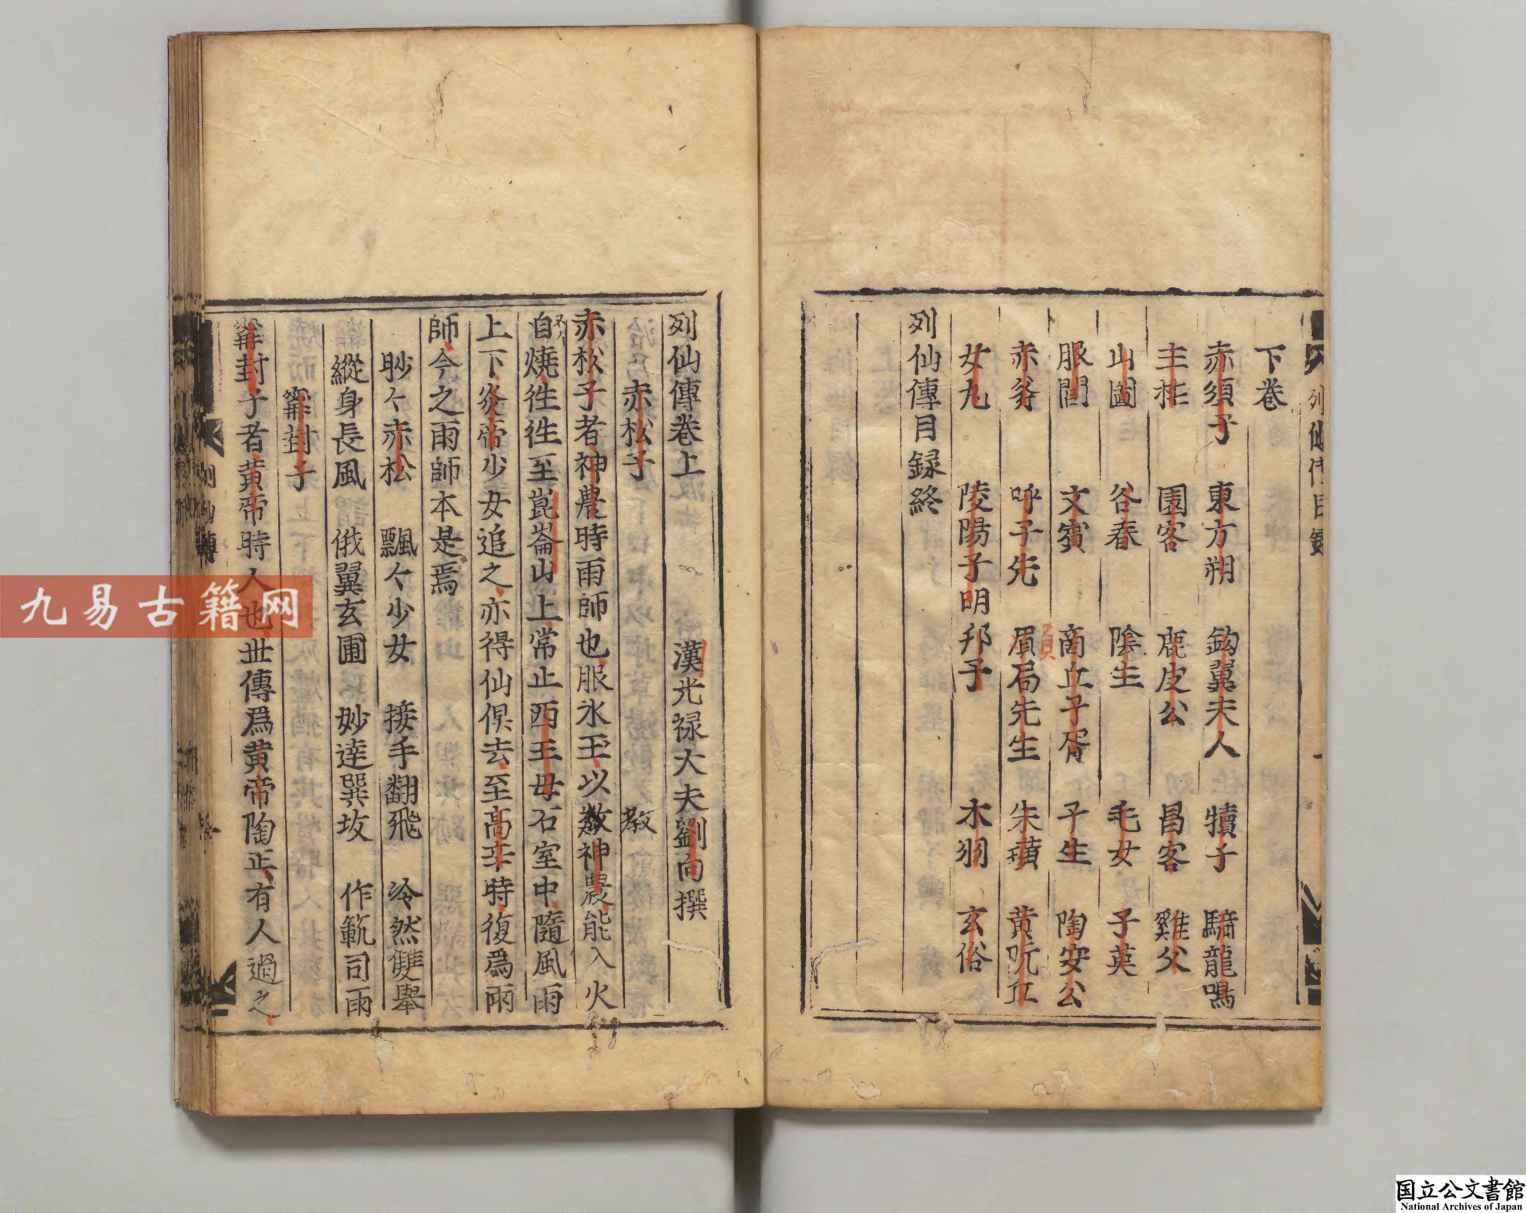 下卷
赤須子　東方朔　鈎翼夫人　犢子　騎龍鳴
主柱　園客　鹿皮公　昌客　谿父
山圖　谷春　陰生　毛女　子英
服閭　文賓　商丘子胥　子主　陶安公
赤斧　呼子先　眉局先生　朱璜　黄阮丘
須
女丸　陵陽子明　邦子　木羽　玄俗
列仙傳目録終
列仙傳卷上
漢光禄大夫劉向撰
赤松子
教
赤松子者神農時雨師也服氷玉以敎神農能入火
自燒徃徃至崑崙山上常止西王母石室中隨風雨
上下炎帝少女追之亦得仙俱去至高辛時復爲雨
師今之雨師本是焉
眇々赤松　飄々少女　接手翻飛　泠然雙舉
縱身長風　俄翼玄圃　妙達巽坎　作範司雨
甯封子
甯封子者黄帝時人也丗傳爲黄帝陶正有人過之
九易古籍网
国立公文書館
National Archives of Japan